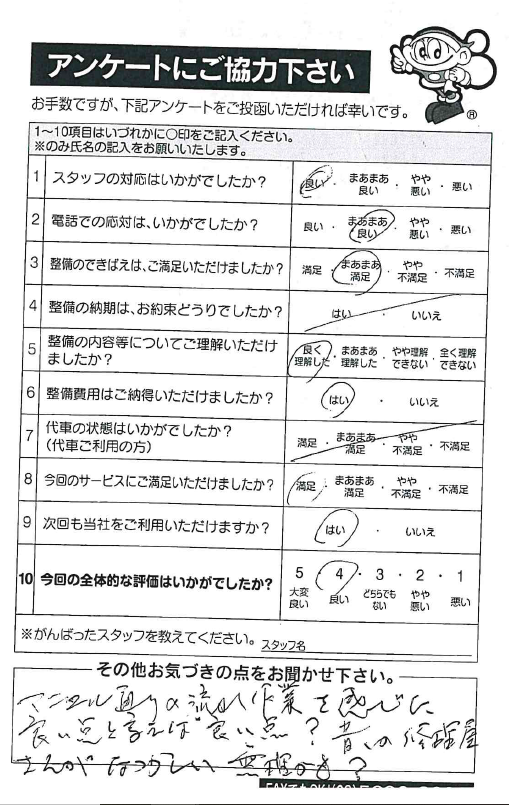 アンケートにご協力下さい
お手数ですが、下記アンケートをご投函いただければ幸いです。
®
1〜10項目はいづれかに〇印をご記入ください。
※のみ氏名の記入をお願いいたします。
1 スタッフの対応はいかがでしたか? 良い・まあまあ良い・やや悪い・悪い
2 電話での応対は、いかがでしたか? 良い・まあまあ良い・やや悪い・悪い
3 整備のできばえは、ご満足いただけましたか? 満足・まあまあ満足・やや不満足・不満足
4 整備の納期は、お約束どうりでしたか? はい・いいえ
5 整備の内容等についてご理解いただけましたか? 良く理解した・まあまあ理解した・やや理解できない・全く理解できない
6 整備費用はご納得いただけましたか? はい・いいえ
7 代車の状態はいかがでしたか?(代車ご利用の方) 満足・まあまあ満足・やや不満足・不満足
8 今回のサービスにご満足いただけましたか? 満足・まあまあ満足・やや不満足・不満足
9 次回も当社をご利用いただけますか? はい・いいえ
10 今回の全体的な評価はいかがでしたか? 5・4・3・2・1
大変良い 良い どちらでもない やや悪い 悪い
※がんばったスタッフを教えてください。 スタッフ名
その他お気づきの点をお聞かせ下さい。
マニュアル通りの流れ作業を感じた
良い点と言えば良い点?昔の修理屋
さんがなつかしい 無理かも?